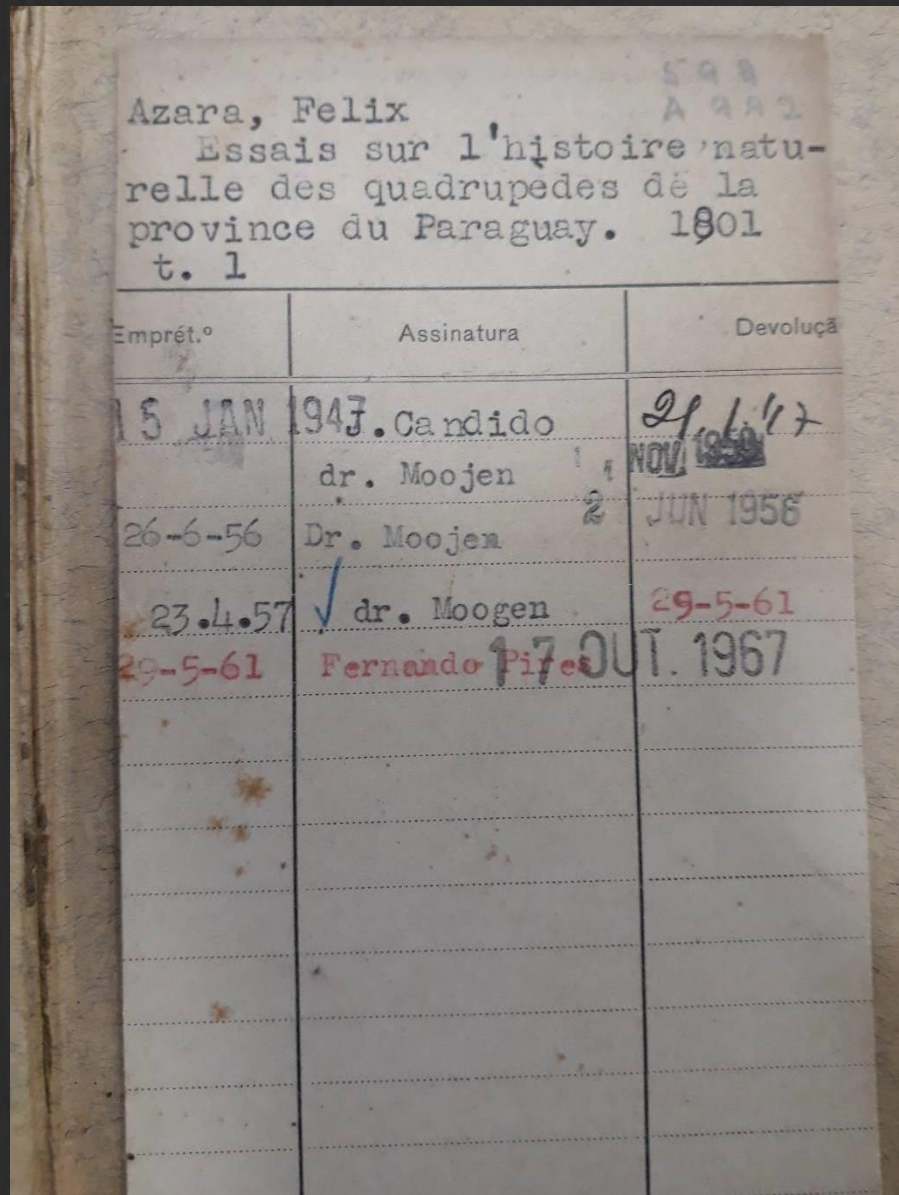 599
A 992
Azara, Felix
Essais sur l'histoire natu-
relle des quadrupedes de la
province du Paraguay. 1801
t. 1
Emprét.º Assinatura Devoluçã
15 JAN 1947 J. Candido
dr. Moojen NOV.
2 JUN 1956
26-6-56 Dr. Moojen
23.4.57 dr. Moogen 29-5-61
29-5-61 Fernando Pires 17 OUT. 1967